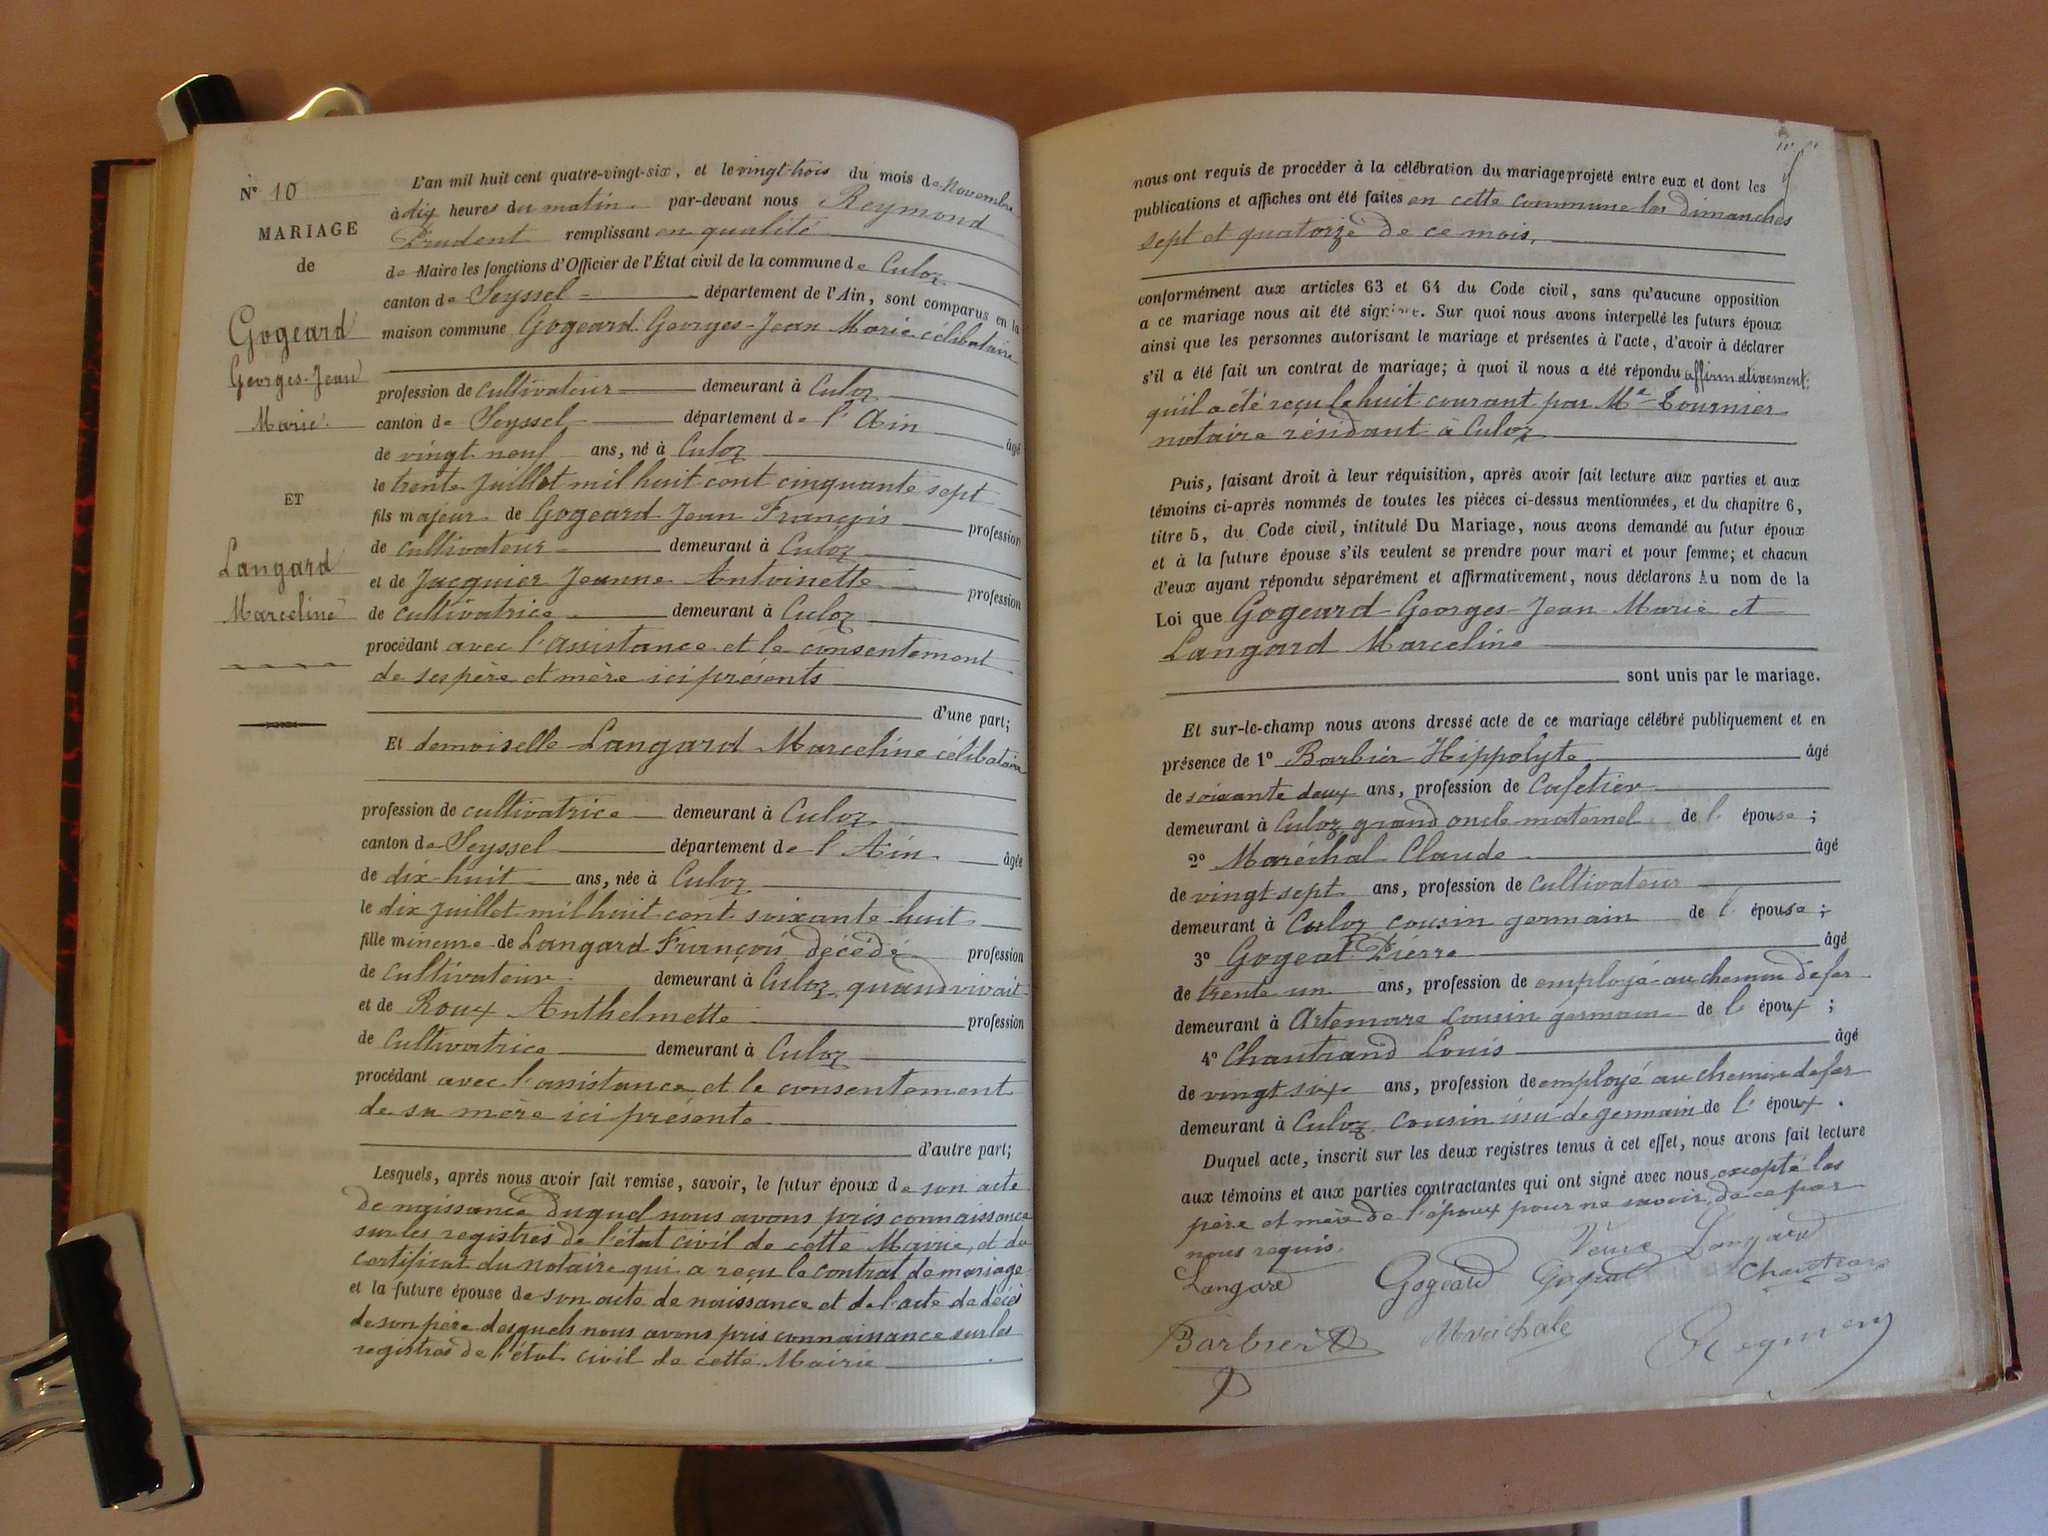 N° 10
MARIAGE
de
Gogeard
Georges-Jean
Marie
ET
Langard
Marceline
L'an mil huit cent quatre-vingt-six, et le vingt-trois du mois de Novembre
à dix heures du matin par-devant nous Reymond
Prudent remplissant en qualité
de Maire les fonctions d'Officier de l'État civil de la commune de Culoz
canton de Seyssel département de l'Ain, sont comparus en la
maison commune Gogeard Georges-Jean Marie célibataire
profession de cultivateur demeurant à Culoz
canton de Seyssel département de l'Ain âgé
de vingt neuf ans, né à Culoz
le trente Juillet mil huit cent cinquante sept
fils majeur de Gogeard Jean François profession
de cultivateur demeurant à Culoz
et de Jacquier Jeanne Antoinette profession
de cultivatrice demeurant à Culoz
procédant avec l'assistance et le consentement
de ses père et mère ici présents
d'une part;
Et demoiselle Langard Marceline célibataire
profession de cultivatrice demeurant à Culoz
canton de Seyssel département de l'Ain âgée
de dix-huit ans, née à Culoz
le dix Juillet mil huit cent soixante huit
fille mineure de Langard François décédé profession
de cultivateur demeurant à Culoz, quand vivait
et de Roux Anthelmette profession
de Cultivatrice demeurant à Culoz
procédant avec l'assistance et le consentement
de sa mère ici présente
d'autre part;
Lesquels, après nous avoir fait remise, savoir, le futur époux de son acte
de naissance duquel nous avons pris connaissance
sur les registres de l'état civil de cette Mairie, et du
certificat du notaire qui a reçu le contrat de mariage
et la future épouse de son acte de naissance et de l'acte de décès
de son père desquels nous avons pris connaissance sur les
registres de l'état civil de cette Mairie
nous ont requis de procéder à la célébration du mariage projeté entre eux et dont les
publications et affiches ont été faites en cette commune les dimanches
sept et quatorze de ce mois,
conformément aux articles 63 et 64 du Code civil, sans qu'aucune opposition
a ce mariage nous ait été signifiée. Sur quoi nous avons interpellé les futurs époux
ainsi que les personnes autorisant le mariage et présentes à l'acte, d'avoir à déclarer
s'il a été fait un contrat de mariage; à quoi il nous a été répondu affirmativement;
qu'il a été reçu le huit courant par Me Tournier
notaire résidant à Culoz
Puis, faisant droit à leur réquisition, après avoir fait lecture aux parties et aux
témoins ci-après nommés de toutes les pièces ci-dessus mentionnées, et du chapitre 6,
titre 5, du Code civil, intitulé Du Mariage, nous avons demandé au futur époux
et à la future épouse s'ils veulent se prendre pour mari et pour femme; et chacun
d'eux ayant répondu séparément et affirmativement, nous déclarons Au nom de la
Loi que Gogeard Georges-Jean Marie et
Langard Marceline
sont unis par le mariage.
Et sur-le-champ nous avons dressé acte de ce mariage célébré publiquement et en
présence de 1° Barbier Hippolyte âgé
de soixante deux ans, profession de Cafetier
demeurant à Culoz grand oncle maternel de l'épouse;
2° Maréchal Claude âgé
de vingt sept ans, profession de cultivateur
demeurant à Culoz cousin germain de l'épouse;
3° Gogeat Pierre âgé
de trente un ans, profession de employé au chemin de fer
demeurant à Artemare cousin germain de l'époux;
4° Chautrand Louis âgé
de vingt six ans, profession de employé au chemin de fer
demeurant à Culoz cousin issu de germain de l'époux.
Duquel acte, inscrit sur les deux registres tenus à cet effet, nous avons fait lecture
aux témoins et aux parties contractantes qui ont signé avec nous excepté les
père et mère de l'époux pour ne savoir, de ce par
nous requis.
Veuve Langard
Langard Gogeard Gogeat Chautrand
Barbier Marichale Reymond